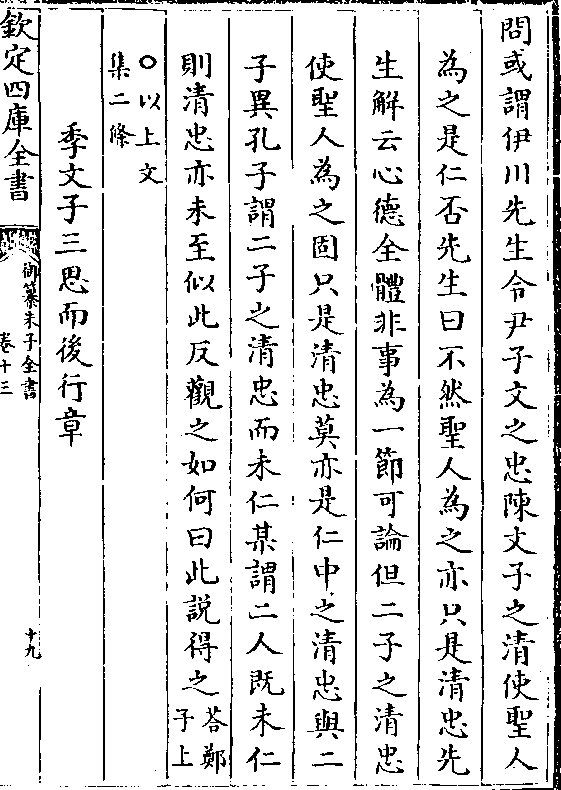 問或謂伊川先生令尹子文之忠陳文子之清使聖人
為之是仁否先生曰不然聖人為之亦只是清忠先
生解云心德全體非事為一節可論但二子之清忠
使聖人為之固只是清忠莫亦是仁中之清忠與二
子異孔子謂二子之清忠而未仁某謂二人既未仁
則清忠亦未至似此反觀之如何曰此説得之荅鄭
子上
○以上文
集二條
季文子三思而後行章
欽定四庫全書
御纂朱子全書
卷十三
十九